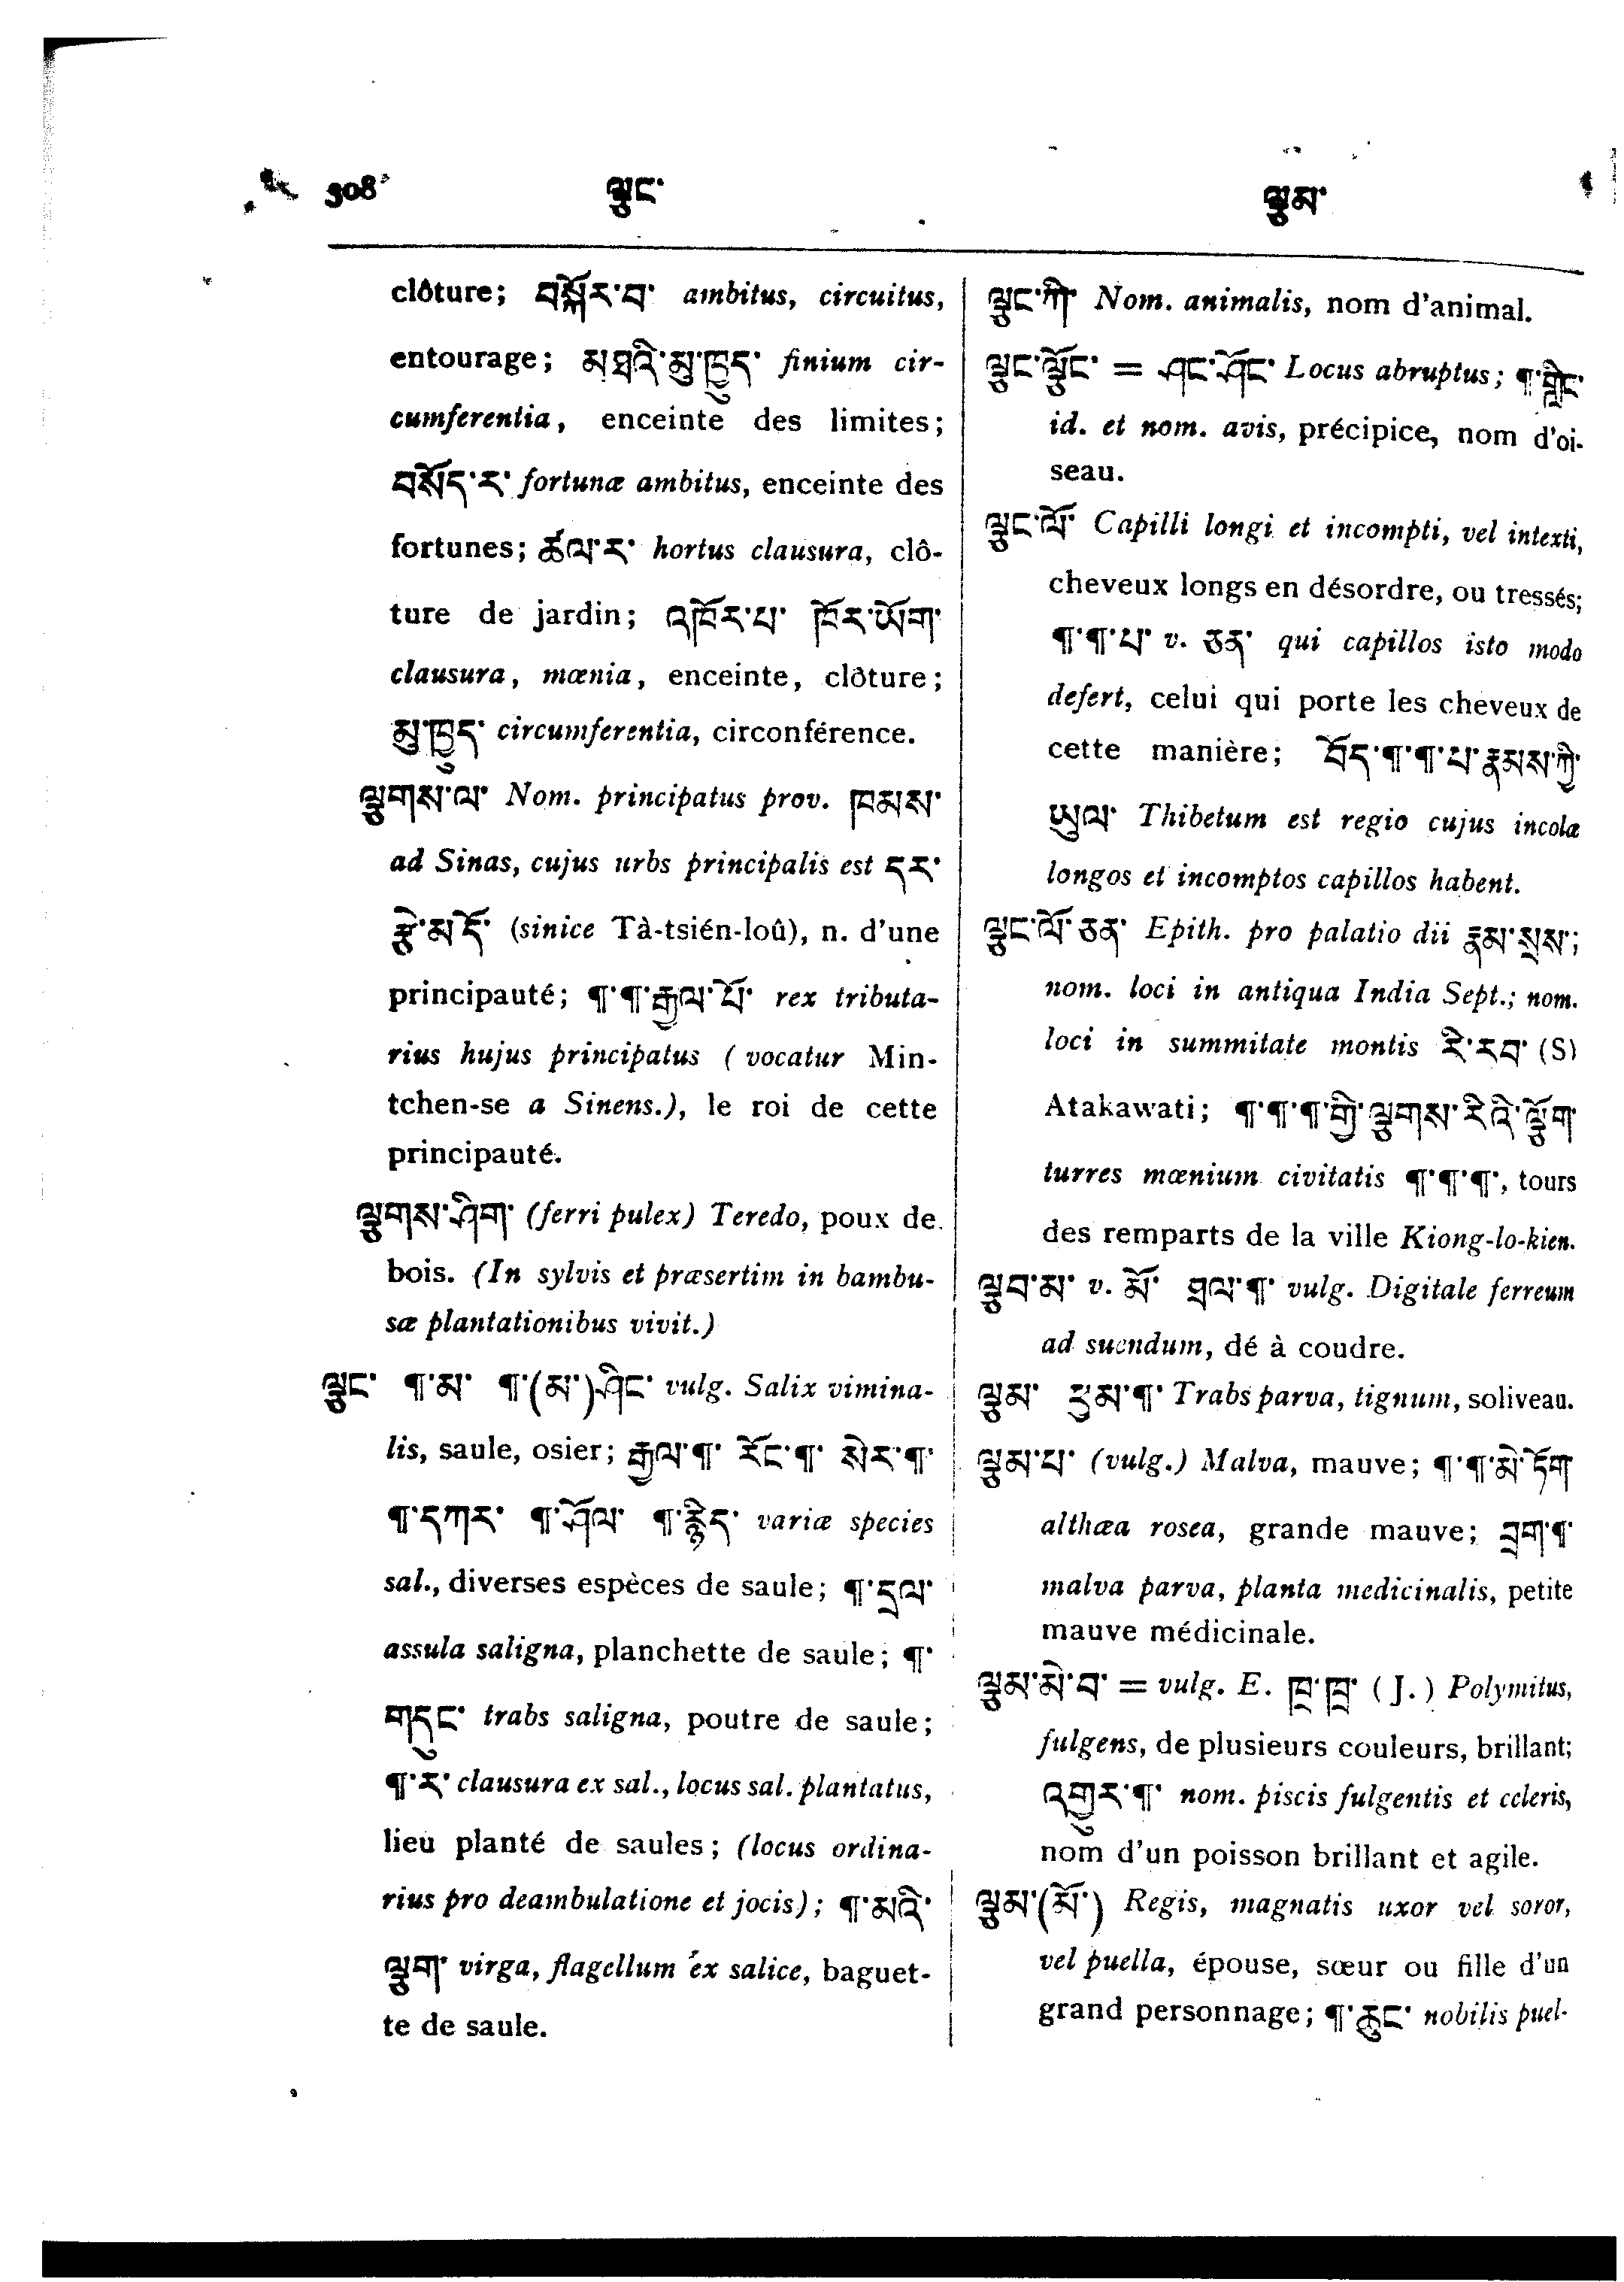 308 ལྕང་ ལྕམ་
clôture; བསྐོར་བ་ ambitus, circuitus,
entourage; མཐའི་མུ་ཁྱུད་ finium cir-
cumferentia, enceinte des limites;
བསོད་ར་ fortunæ ambitus, enceinte des
fortunes; ཚལ་ར་ hortus clausura, clô-
ture de jardin; འཁོར་པ་ ཁོར་ཡོག་
clausura, mœnia, enceinte, clôture;
མུ་ཁྱུད་ circumferentia, circonférence.
ལྕགས་ལ་ Nom. principatus prov. ཁམས་
ad Sinas, cujus urbs principalis est དར་
རྩེ་མདོ་ (sinice Tà-tsién-loû), n. d'une
principauté; ¶་¶་རྒྱལ་པོ་ rex tributa-
rius hujus principatus (vocatur Min-
tchen-se a Sinens.), le roi de cette
principauté.
ལྕགས་ཤིག་ (ferri pulex) Teredo, poux de
bois. (In sylvis et præsertim in bambu-
sæ plantationibus vivit.)
ལྕང་ ¶་མ་ ¶་(མ་)ཤིང་ vulg. Salix vimina-
lis, saule, osier; རྒྱལ་¶་ རོང་¶་ སེར་¶་
¶་དཀར་ ¶་ཤོལ་ ¶་རྙེད་ variæ species
sal., diverses espèces de saule; ¶་དྲལ་
assula saligna, planchette de saule; ¶་
གདུང་ trabs saligna, poutre de saule;
¶་ར་ clausura ex sal., locus sal. plantatus,
lieu planté de saules; (locus ordina-
rius pro deambulatione et jocis); ¶་མའི་
ལྕག་ virga, flagellum ex salice, baguet-
te de saule.
ལྕང་ཀི་ Nom. animalis, nom d'animal.
ལྕང་ལྕོང་ = ཤང་ཤོང་ Locus abruptus; ¶་གླིང་
id. et nom. avis, précipice, nom d'oi-
seau.
ལྕང་ལོ་ Capilli longi et incompti, vel intexti,
cheveux longs en désordre, ou tressés;
¶་¶་པ་ v. ཅན་ qui capillos isto modo
defert, celui qui porte les cheveux de
cette manière; བོད་¶་¶་པ་རྣམས་ཀྱི་
ཡུལ་ Thibetum est regio cujus incolæ
longos et incomptos capillos habent.
ལྕང་ལོ་ཅན་ Epith. pro palatio dii རྣམ་སྲས་;
nom. loci in antiqua India Sept.; nom.
loci in summitate montis རི་རབ་ (S)
Atakawati; ¶་¶་¶་གྱི་ལྕགས་རིའི་ལྕོག་
turres mœnium civitatis ¶་¶་¶་, tours
des remparts de la ville Kiong-lo-kien.
ལྕབ་མ་ v. མོ་ ཐལ་¶་ vulg. Digitale ferreum
ad suendum, dé à coudre.
ལྕམ་ ཕྱམ་¶་ Trabs parva, tignum, soliveau.
ལྕམ་པ་ (vulg.) Malva, mauve; ¶་¶་མེ་ཏོག་
althæa rosea, grande mauve; བྲག་¶་
malva parva, planta medicinalis, petite
mauve médicinale.
ལྕམ་མེ་བ་ = vulg. E. ཁྲ་ཁྲ་ (J.) Polymitus,
fulgens, de plusieurs couleurs, brillant;
འགྱུར་¶་ nom. piscis fulgentis et celeris,
nom d'un poisson brillant et agile.
ལྕམ་(མོ་) Regis, magnatis uxor vel soror,
vel puella, épouse, sœur ou fille d'un
grand personnage; ¶་ཆུང་ nobilis puel-